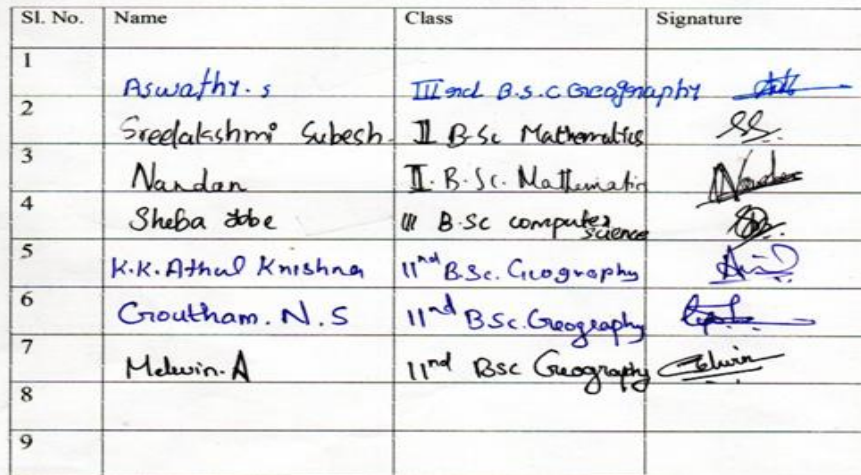 Sl. No. Name Class Signature
1 Aswathy. s IIIrd B.s.c Geography
2 Sreelakshmi Subesh. II B.Sc Mathematics SS
3 Nandan II. B.Sc. Mathematic
4 Sheba Jobe III B.Sc computer science
5 K.K. Athul Krishna IInd B.Sc. Geography
6 Goutham. N. S IInd B.Sc. Geography
7 Melwin. A IInd Bsc Geography
8
9